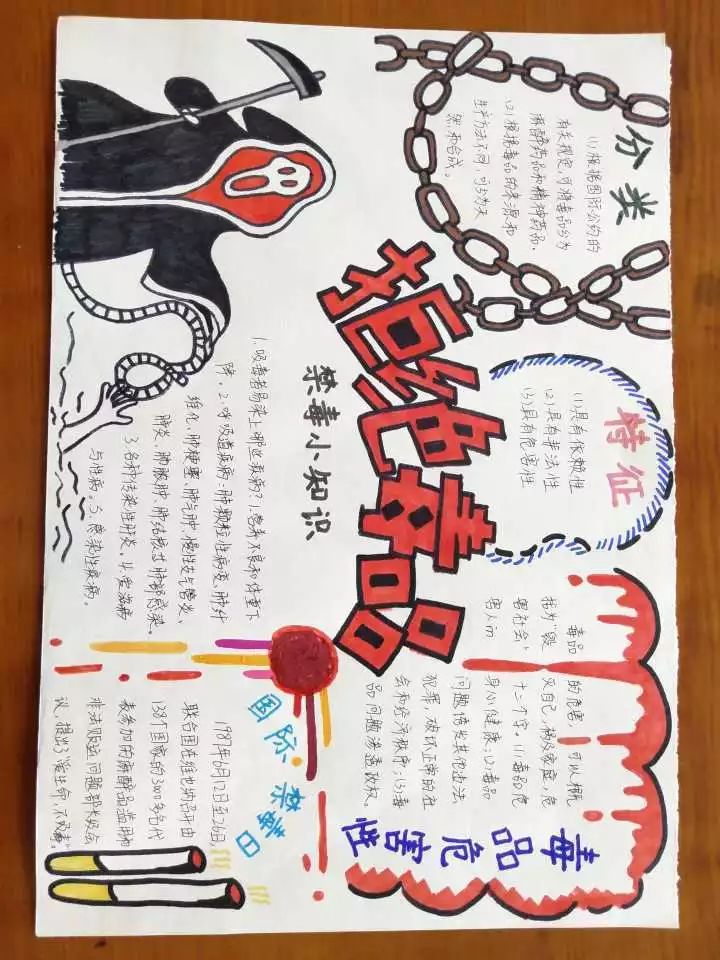 拒绝毒品
分类
(1)根据国际公约的
有关规定,可将毒品分为
麻醉药品和精神药品。
(2)根据毒品的来源和
生产方法不同,可分为天
然和合成。
特征
(1)具有依赖性
(2)具有非法性
(3)具有危害性
毒品危害性
毒品的危害,可以概
括为"毁灭自己,祸及家庭,危
害社会"十二个字。(1)毒品危
害人的身心健康;(2)毒品
问题诱发其他违法
犯罪,破坏正常的社
会和经济秩序;(3)毒
品问题渗透政权。
禁毒小知识
1.吸毒者易染上哪些疾病?1.营养不良和体重下
降。2.呼吸道疾病:肺颗粒性病变、肺纤
维化、肺梗塞、肺气肿、慢性支气管炎、
肺炎、肺脓肿、肺结核或肺部感染。
3.各种传染性肝炎。4.艾滋病
与性病。5.感染性疾病。
国际禁毒日
1987年6月12日至26日,
联合国在维也纳召开由
138个国家的3000名代
表参加的麻醉品滥用和
非法贩运问题部长级会
议,提出了"爱生命,不吸毒"